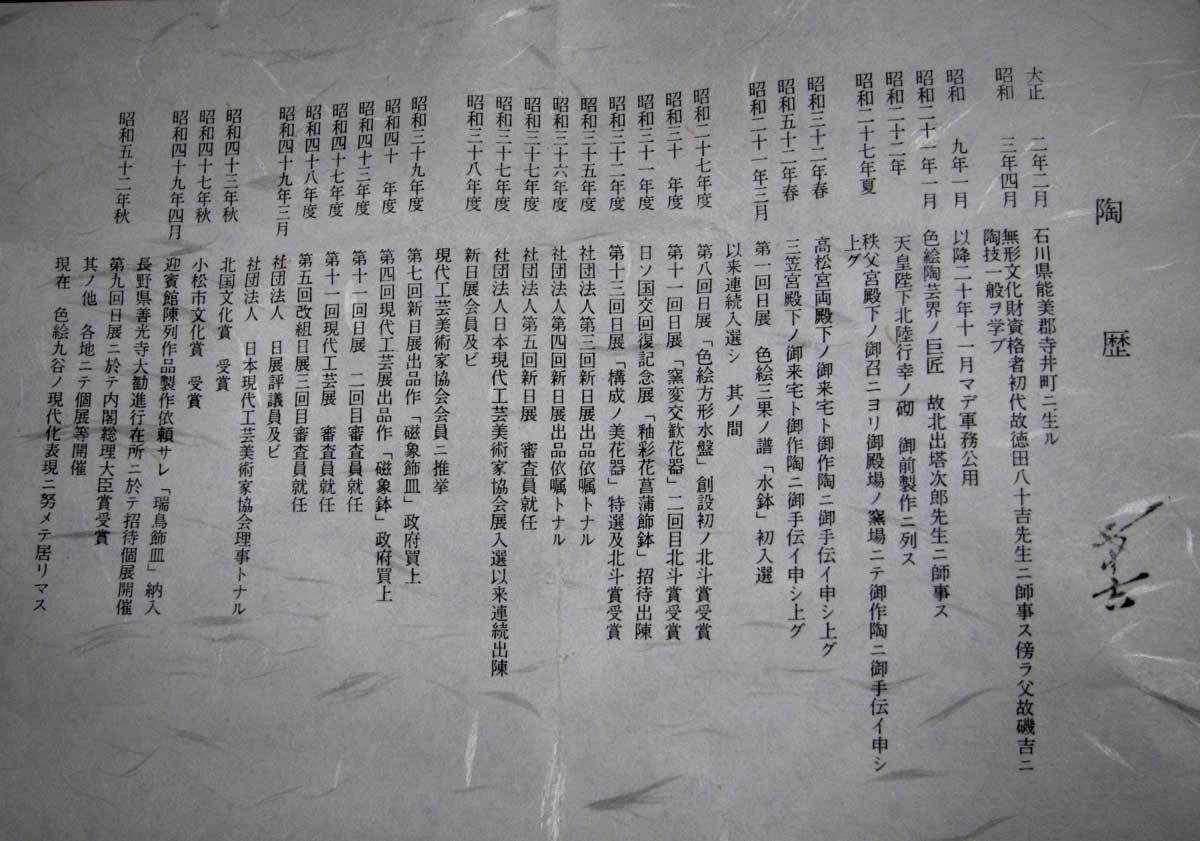 陶歴
大正 二年二月 石川県能美郡寺井町ニ生ル
昭和 三年四月 無形文化財資格者初代故徳田八十吉先生ニ師事ス傍ラ父故磯吉ニ
陶技一般ヲ学ブ
昭和 九年一月 以降二十年十一月マデ軍務公用
昭和二十一年一月 色絵陶芸界ノ巨匠 故北出塔次郎先生ニ師事ス
昭和二十二年 天皇陛下北陸行幸ノ砌 御前製作ニ列ス
昭和二十七年夏 秩父宮殿下ノ御召ニヨリ御殿場ノ窯場ニテ御作陶ニ御手伝イ申シ
上グ
昭和三十二年春 高松宮両殿下ノ御来宅ト御作陶ニ御手伝イ申シ上グ
昭和五十二年春 三笠宮殿下ノ御来宅ト御作陶ニ御手伝イ申シ上グ
昭和二十一年三月 第一回日展 色絵三果ノ譜「水鉢」初入選
以来連続入選シ 其ノ間
昭和二十七年度 第八回日展「色絵方形水盤」創設初ノ北斗賞受賞
昭和三十 年度 第十一回日展「窯変交歓花器」二回目北斗賞受賞
昭和三十一年度 日ソ国交回復記念展「釉彩花菖蒲飾鉢」招待出陳
昭和三十二年度 第十三回日展「構成ノ美花器」特選及北斗賞受賞
昭和三十五年度 社団法人第三回新日展出品依嘱トナル
昭和三十六年度 社団法人第四回新日展出品依嘱トナル
昭和三十七年度 社団法人第五回新日展 審査員就任
昭和三十七年度 社団法人日本現代工芸美術家協会展入選以来連続出陳
昭和三十八年度 新日展会員及ビ
現代工芸美術家協会会員ニ推挙
昭和三十九年度 第七回新日展出品作「磁象飾皿」政府買上
昭和四十 年度 第四回現代工芸展出品作「磁象鉢」政府買上
昭和四十三年度 第十一回日展 二回目審査員就任
昭和四十七年度 第十一回現代工芸展 審査員就任
昭和四十八年度 第五回改組日展三回目審査員就任
昭和四十九年三月 社団法人 日展評議員及ビ
社団法人 日本現代工芸美術家協会理事トナル
昭和四十三年秋 北国文化賞 受賞
昭和四十七年秋 小松市文化賞 受賞
昭和四十九年四月 迎賓館陳列作品製作依頼サレ「瑞鳥飾皿」納入
長野県善光寺大勧進行在所ニ於テ招待個展開催
昭和五十二年秋 第九回日展ニ於テ内閣総理大臣賞受賞
其ノ他 各地ニテ個展等開催
現在 色絵九谷ノ現代化表現ニ努メテ居リマス